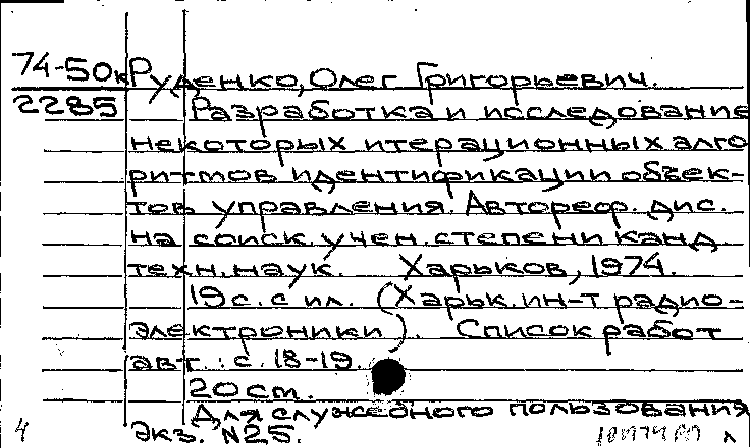 74-50к Руденко, Олег Григорьевич.
2285 Разработка и исследование
некоторых итерационных алго
ритмов идентификации объек-
тов управления. Автореф. дис.
на соиск. учен. степени канд.
техн. наук. Харьков, 1974.
19 с. с ил. (Харьк. ин-т радио-
электроники). Список работ
авт.: с. 18-19.
20 см.
Для служебного пользования
Экз. №25.
4